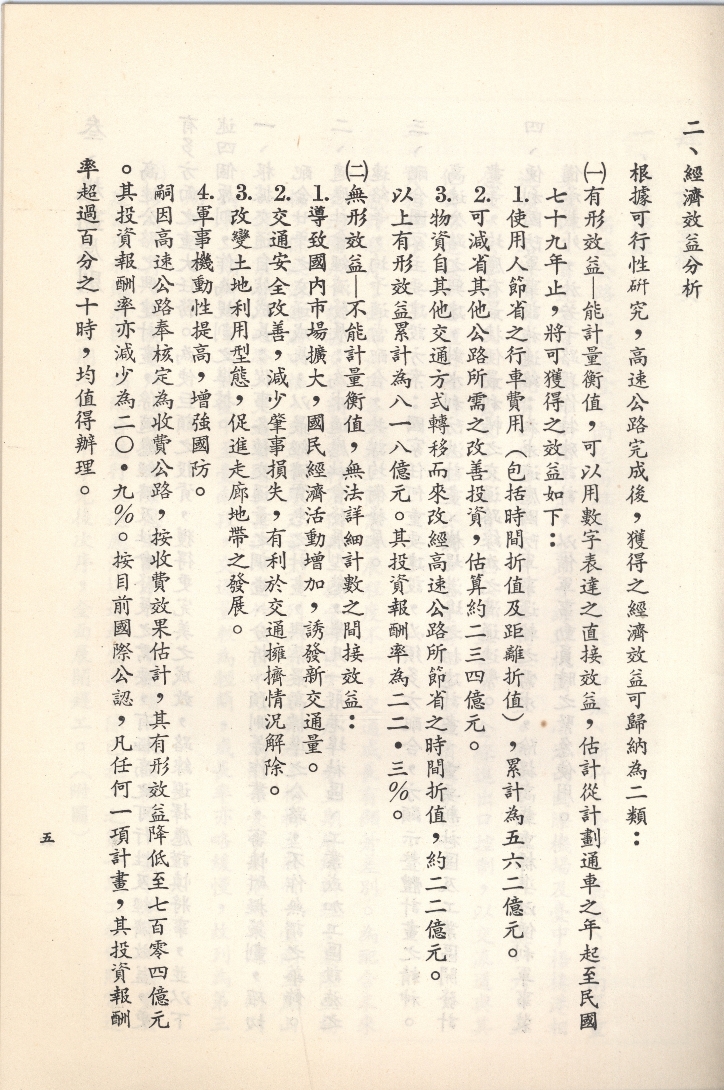 二、經濟效益分析
根據可行性研究，高速公路完成後，獲得之經濟效益可歸納為二類：
㈠有形效益—能計量衡值，可以用數字表達之直接效益，估計從計劃通車之年起至民國
七十九年止，將可獲得之效益如下：
1.使用人節省之行車費用（包括時間折值及距離折值），累計為五六二億元。
2.可減省其他公路所需之改善投資，估算約二三四億元。
3.物資自其他交通方式轉移而來改經高速公路所節省之時間折值，約二二億元。
以上有形效益累計為八一八億元。其投資報酬率為二二•三％。
㈡無形效益—不能計量衡值，無法詳細計數之間接效益：
1.導致國內市場擴大，國民經濟活動增加，誘發新交通量。
2.交通安全改善，減少肇事損失，有利於交通擁擠情況解除。
3.改變土地利用型態，促進走廊地帶之發展。
4.軍事機動性提高，增強國防。
嗣因高速公路奉核定為收費公路，按收費效果估計，其有形效益降低至七百零四億元
。其投資報酬率亦減少為二〇•九％。按目前國際公認，凡任何一項計畫，其投資報酬
率超過百分之十時，均值得辦理。
五